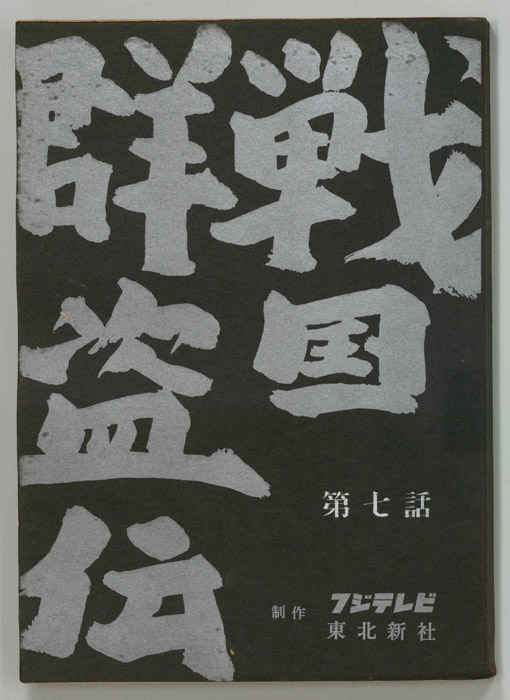 戦国
群盗伝
第七話
制作 フジテレビ
東北新社